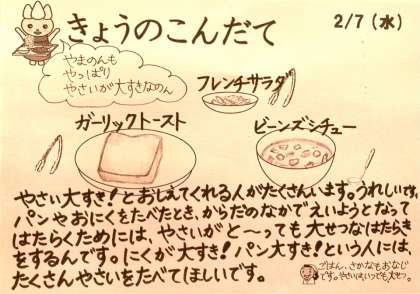 きょうのこんだて
2/7 (水)
やまのんも
やっぱり
やさいが大すきなのん
フレンチサラダ
ガーリックトースト
ビーンズシチュー
やさい大すき！とおしえてくれる人がたくさんいます。うれしいです。
パンやおにくをたべたとき、からだのなかでえいようとなって
はたらくためには、やさいがと〜っても大せつなはたらき
をするんです。にくが大すき！パン大すき！という人には、
たくさんやさいをたべてほしいです。
ごはん、さかなもおなじ
です。やさいはいつでも大せつ。